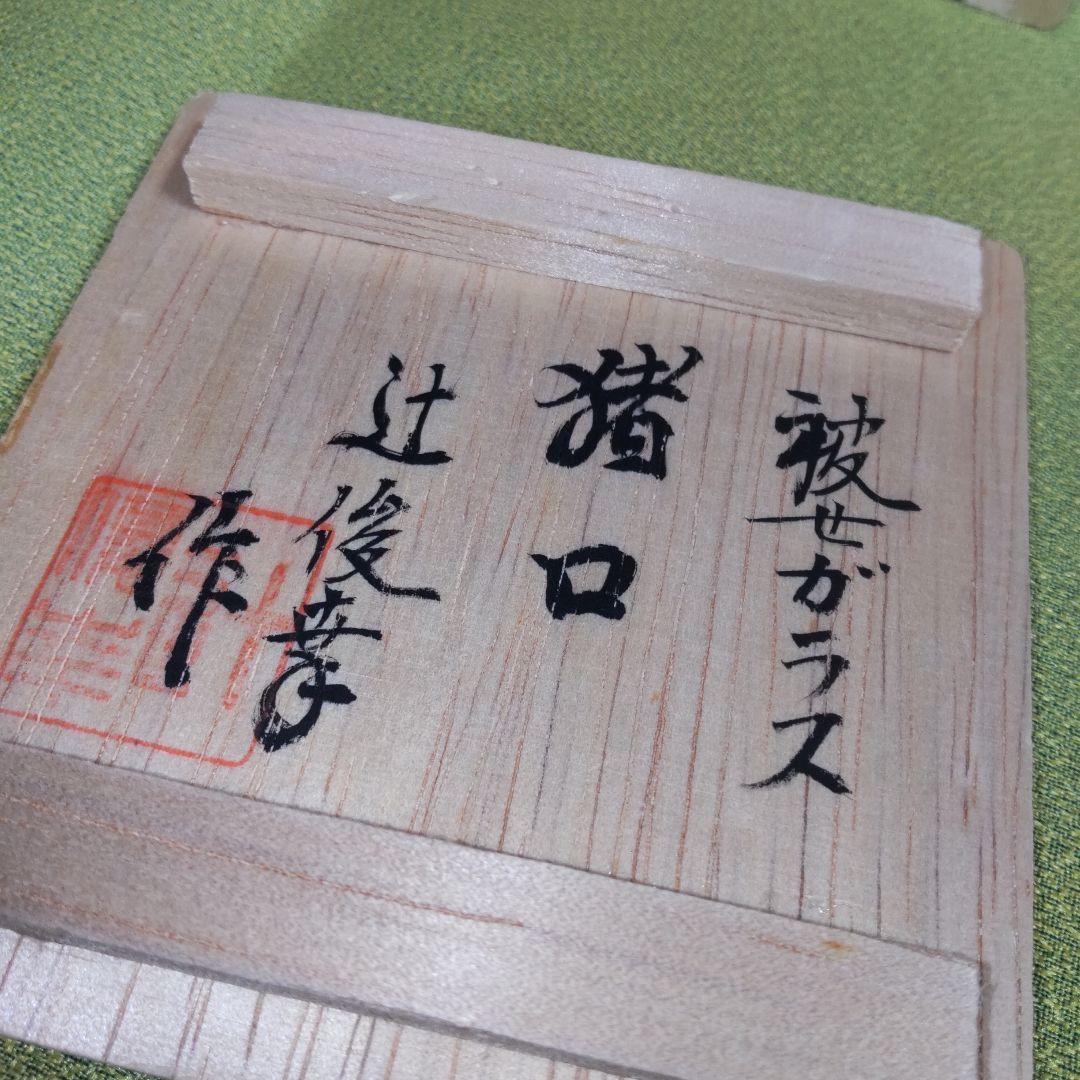 被せガラス
猪口
辻俊幸
作